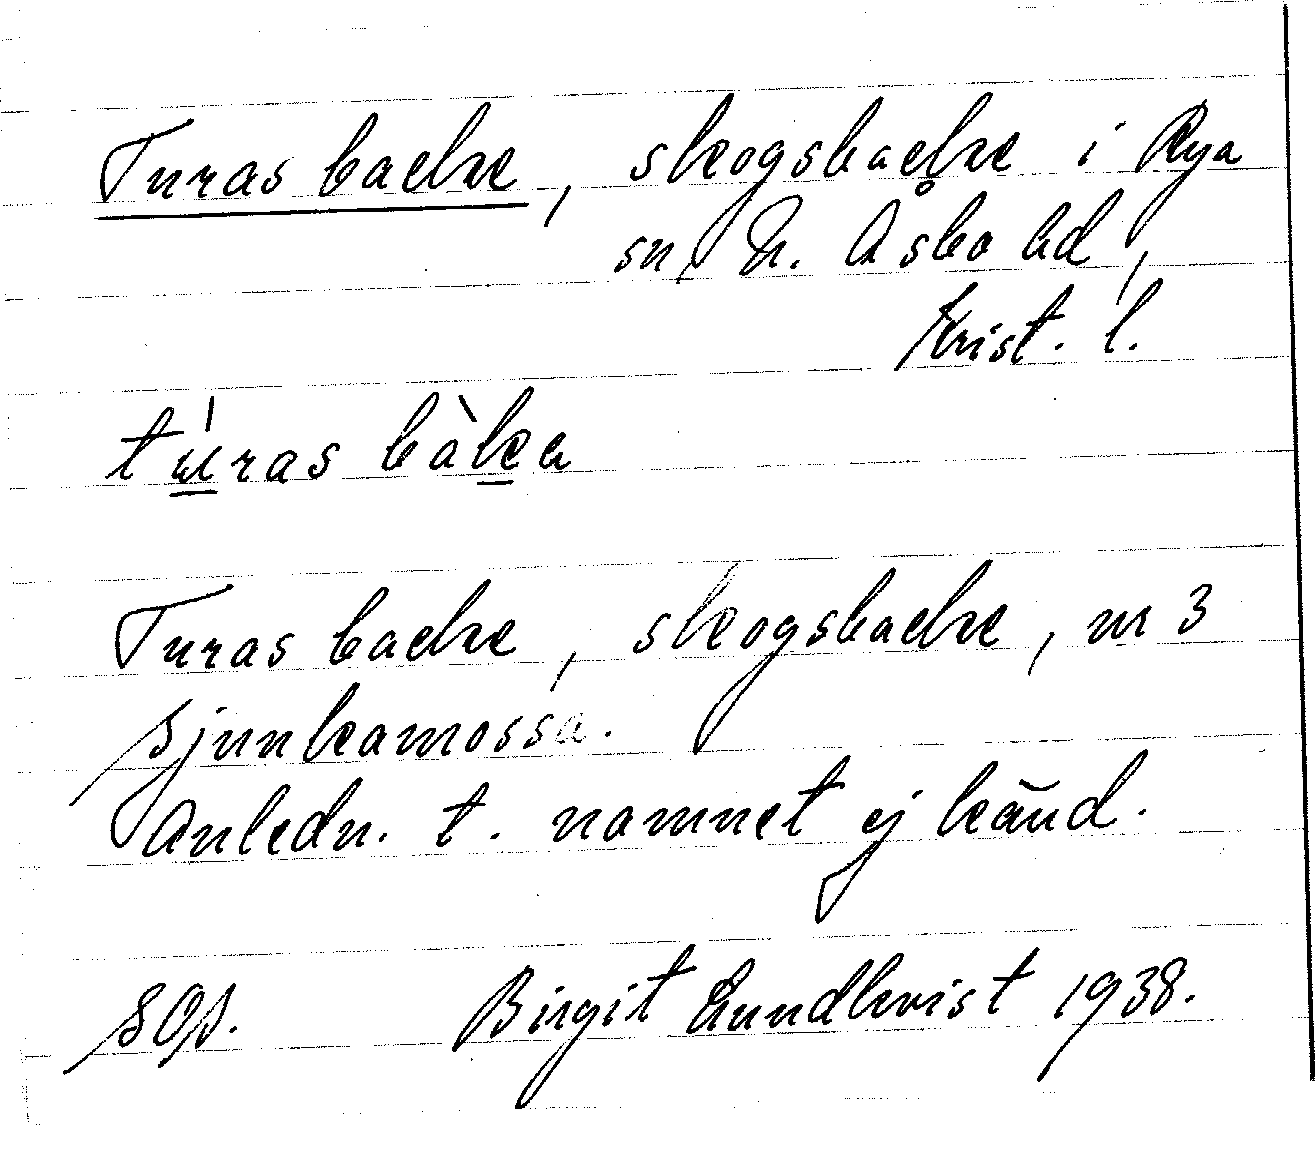 Turas backe, skogsbacke i Rya
sn, N. Åsbo hd,
Krist. l.
túras bàkea
Turas backe, skogsbacke, nr 3
Sjunkamossa.
Anledn. t. namnet ej känd.
SOp. Birgit Lundkvist 1938.